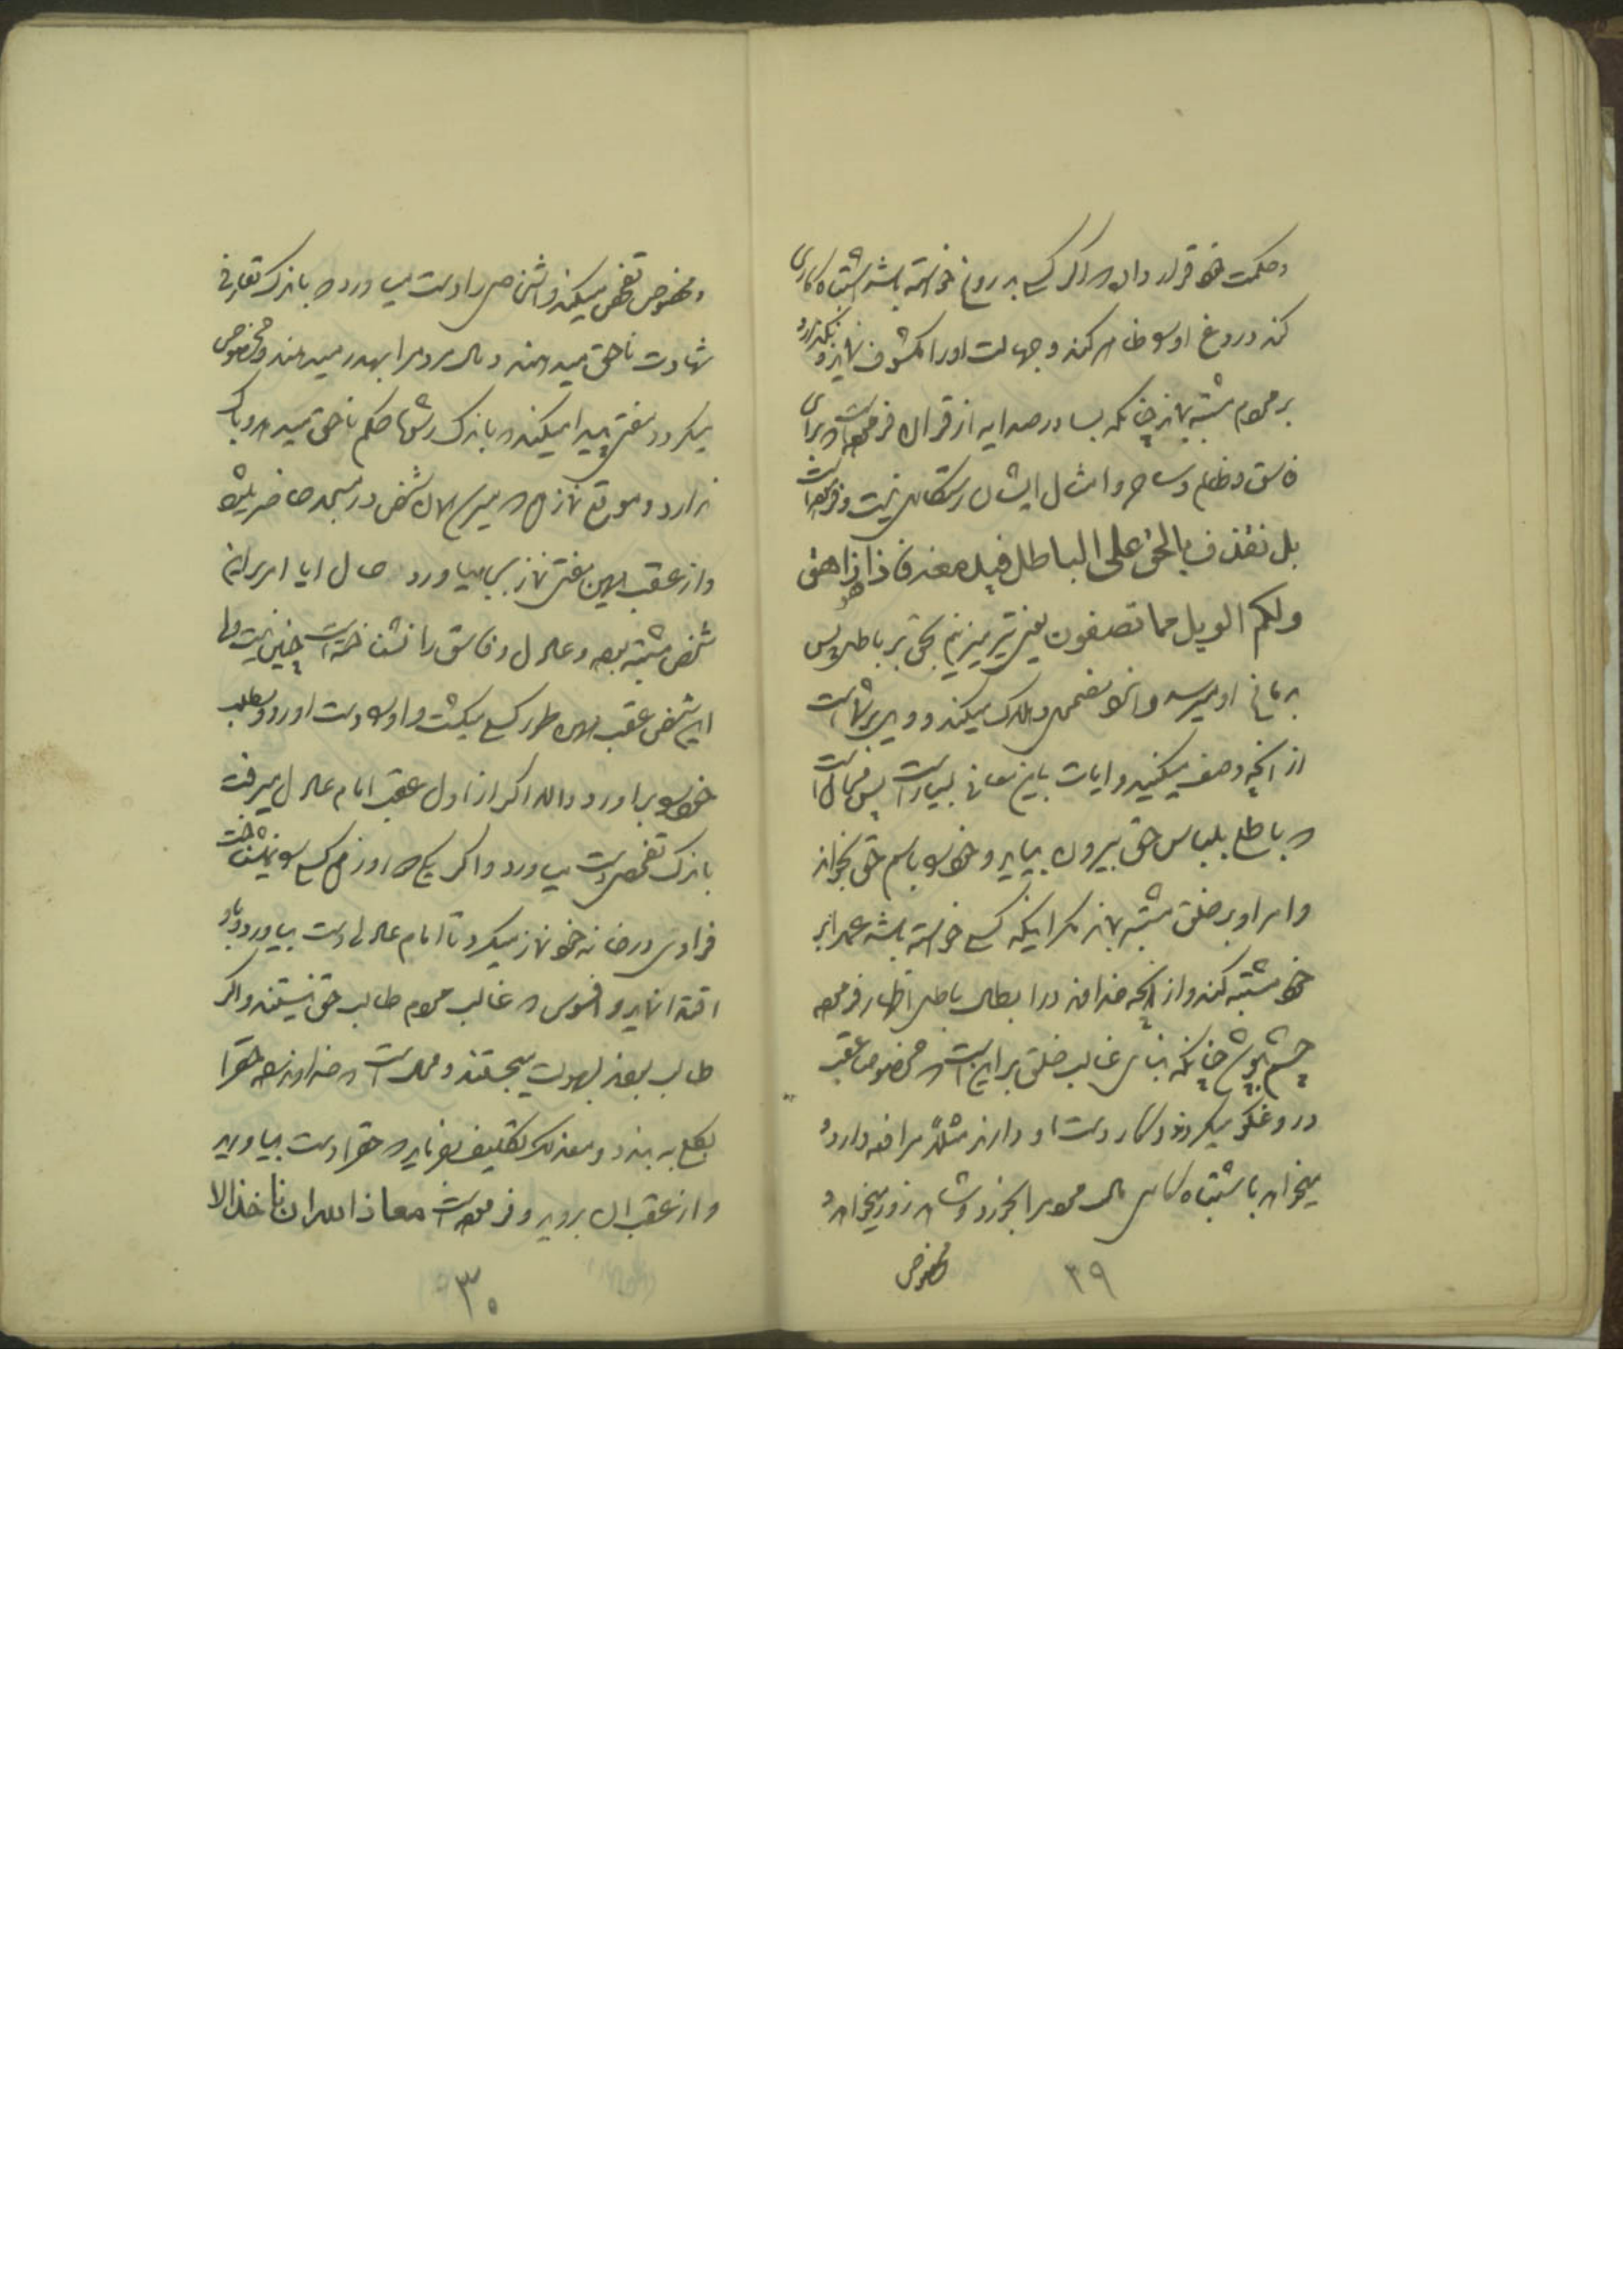 و حکمت خود قرار داده که اگر کسی بدروغ خواسته باشد اشتباه کاری
کند دروغ او را ظاهر کند و جهالت او را مکشوف نماید و نگذارد
بر مردم مشتبه نماید چنانکه بسا در صد ایه از قران فرموده است که برای
فاسق و ظالم و ساحر و امثال ایشان رستگاری نیست و فرموده است
بل نقذف بالحق علی الباطل فیدمغه فاذا هو زاهق
ولکم الویل مما تصفون یعنی تیر میزنیم بحق بر باطل پس
بدماغ او میرسد و انرا مضمحل و هلاک میکند و وای بر شماست
از انچه وصف میکنید و ایات باین معانی بسیار است پس محال است
که باطل بلباس حق بیرون بیاید و خود را باسم حق بخواند
و امر او بر خلق مشتبه بماند مگر اینکه کسی خواسته باشد عمدا بر
خود مشتبه کند و از انچه خداوند در ابطال باطل اظهار فرموده
چشم بپوشد چنانکه بنای غالب خلق بر این است که مخصوصا عقب
دروغگو میگردند و کار دست او دارند مثلا مرافعه دارد و
میخواهد باشتباه کاری مال مردم را بخورد و شاهد زور میخواهد و
مخصوص
۲۹
و مخصوص تفحص میکند و اشخاصی را دست میاورد که باندک تعارفی
شهادت ناحق میدهند و مال مردم را بهدر میدهند و مخصوص
میگردد مفتی پیدا میکند که باندک رشوه حکم ناحق میدهد و باک
ندارد و موقع نماز که میرسد همان شخص در مسجد حاضر میشود
و از عقب همین مفتی نماز بجا میاورد حال ایا امر بر این
شخص مشتبه بوده و عادل و فاسق را نشناخته است چنین نیست و لله
این شخص عقب همین طور کسی میگشت و او را دست اورد و مطلب
خود را براورد والله اگر از اول عقب امام عادل میرفت
باندک تفحصی دست میاورد و اگر یکی دو روز هم کسی را نمیشناخت
فرادی در خانه خود نماز میکرد تا امام عادلی دست بیاورد و باو
اقتدا نماید و افسوس که غالب مردم طالب حق نیستند و اگر
طالب بودند بسهولت میجستند و محال است که خداوند راه حق را
بکلی به بندد و معذلک تکلیف بفرماید که حق را دست بیاورید
و از عقب ان بروید و فرموده است معاذ الله ان ناخذ الا
۳۰